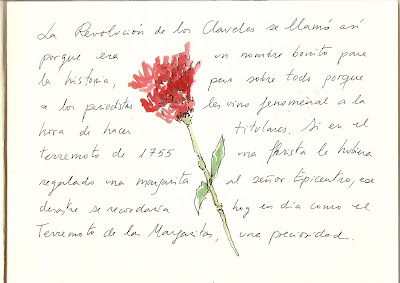 La Revolución de los Claveles se llamó así
porque era un nombre bonito para
la historia, pero sobre todo porque
a los periodistas les vino fenomenal a la
hora de hacer titulares. Si en el
terremoto de 1755 una florista le hubiera
regalado una margarita al señor Epicentro, ese
desastre se recordaría hoy en día como el
Terremoto de las Margaritas, una preciosidad.